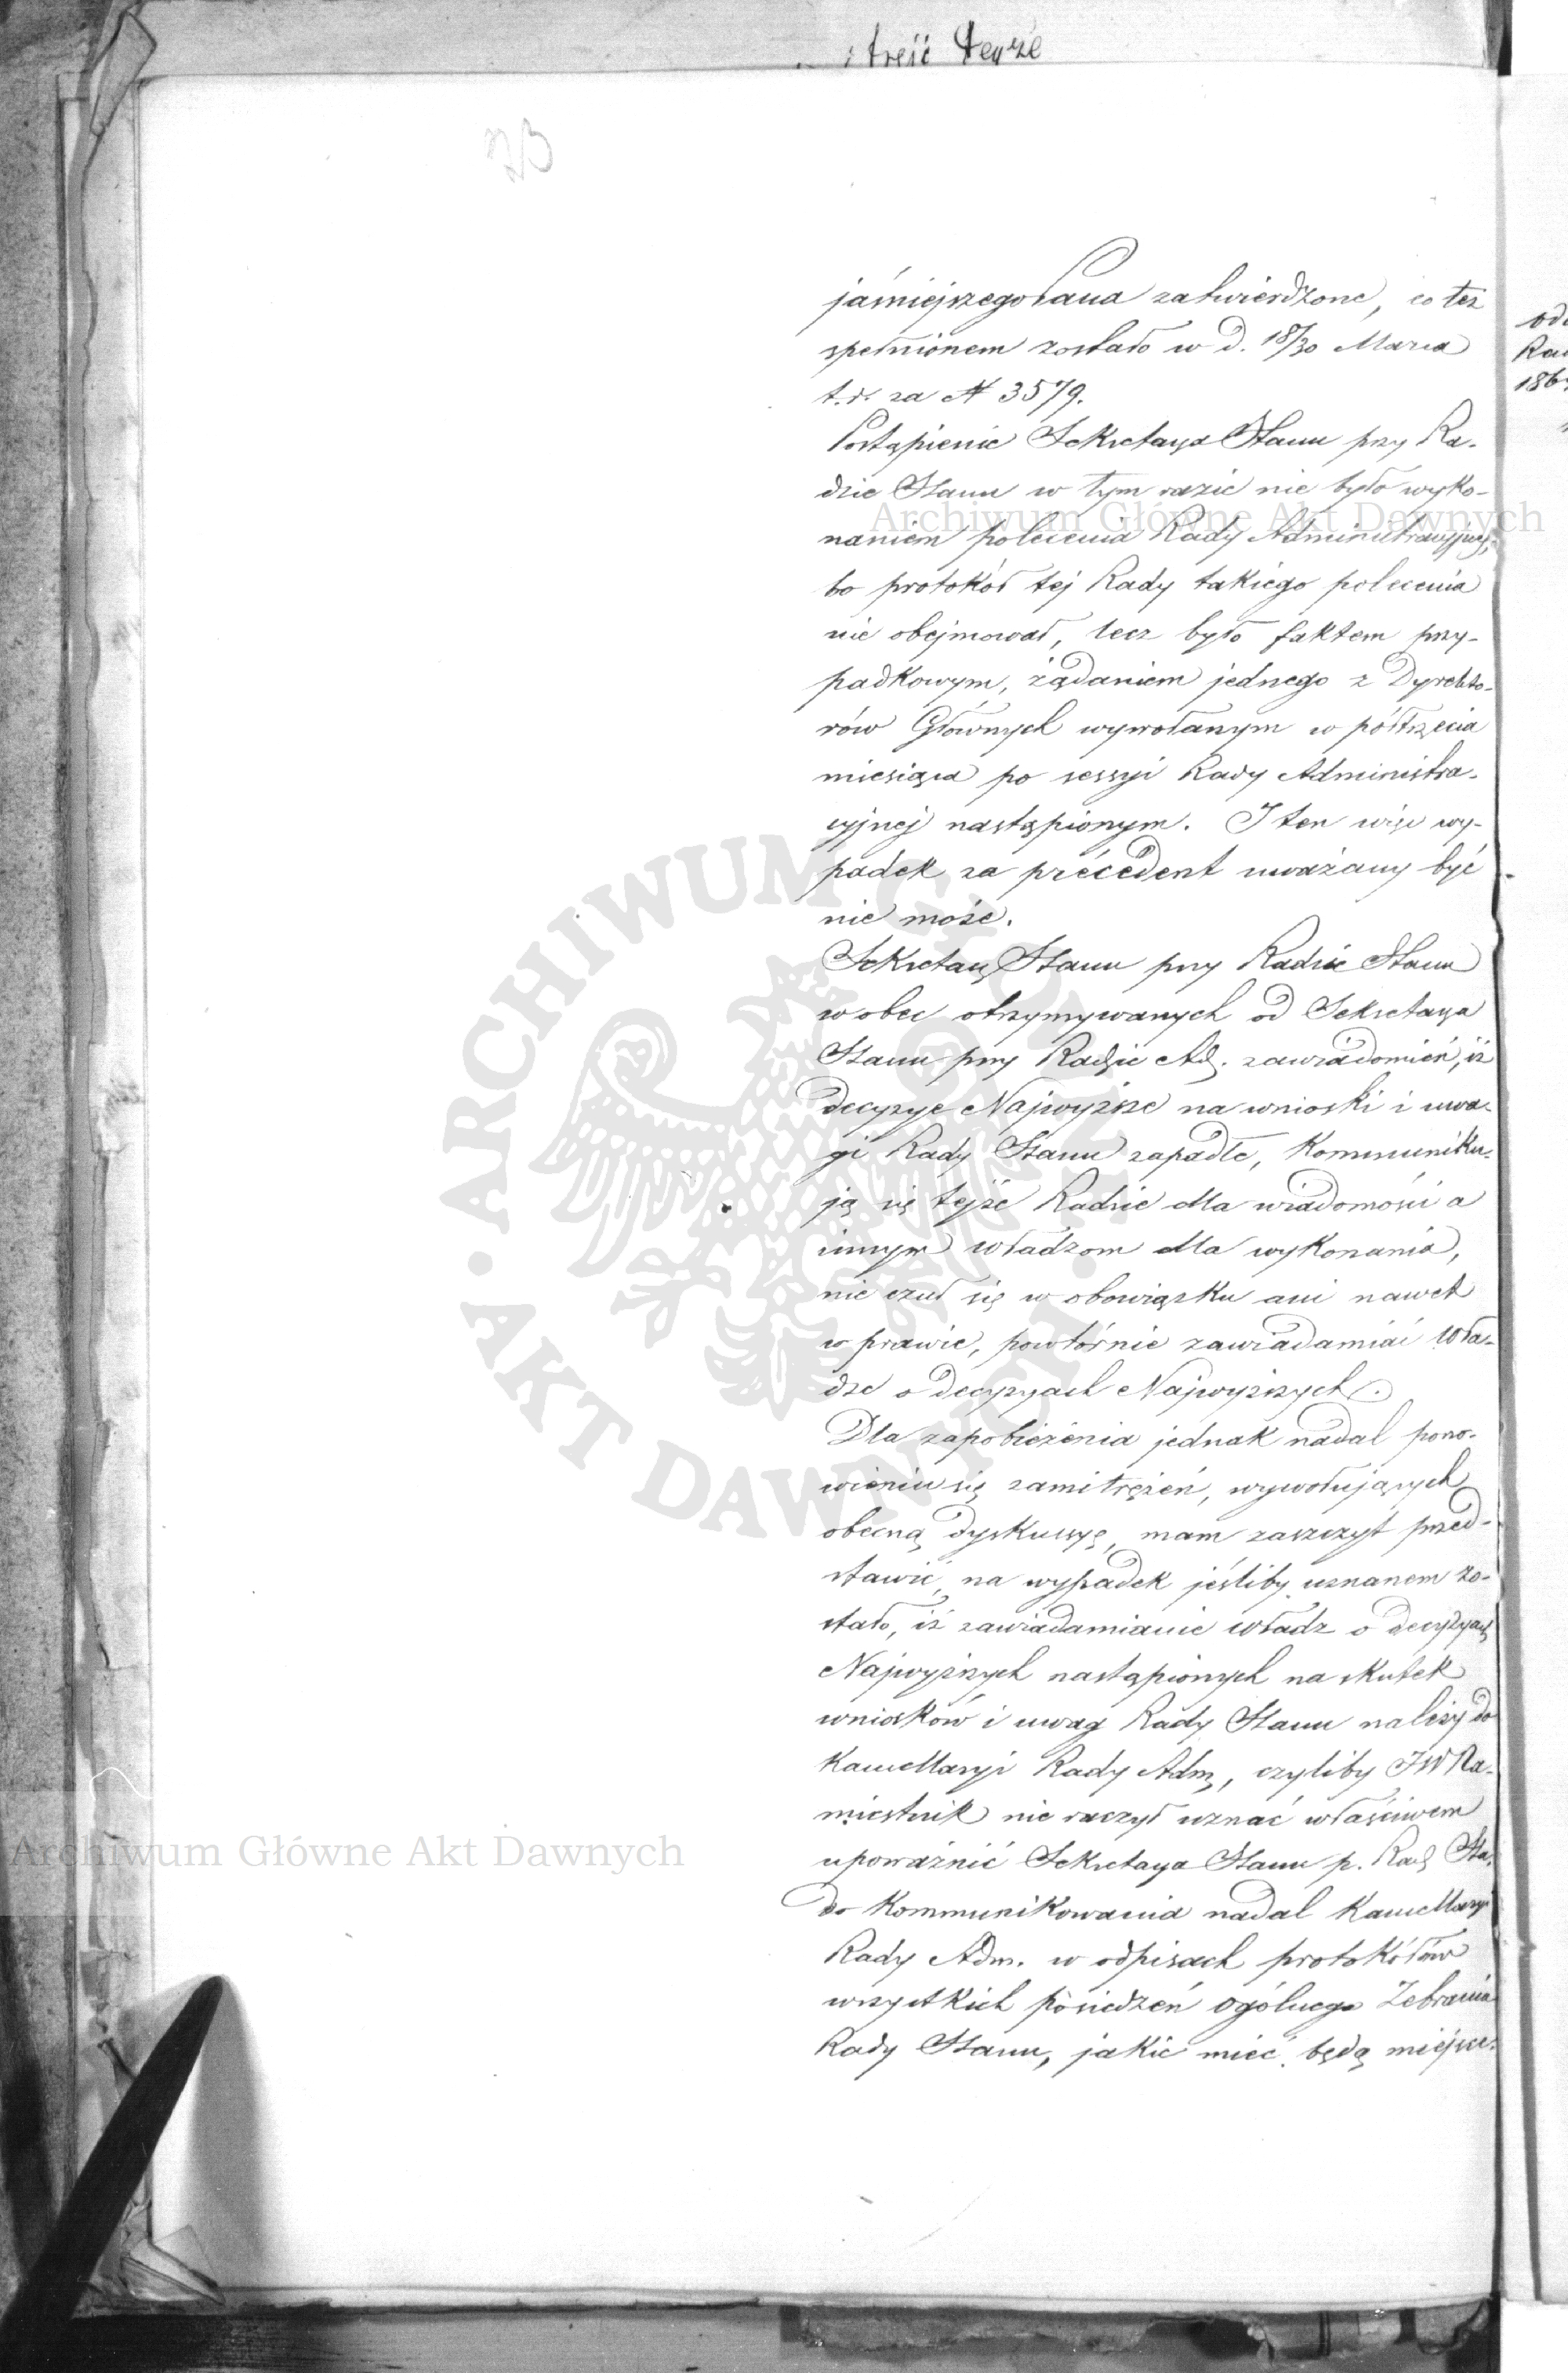 treść
23
jaśniejszego Pana zatwierdzone, co też
spełnionem zostało w d. 18/30 Marca
t. r. za N 3579.
Postąpienie Sekretarza Stanu przy Ra-
dzie Stanu w tym razie nie było wyko-
naniem polecenia Rady Administracyjnej,
bo protokół tej Rady takiego polecenia
nie obejmował, lecz było faktem przy-
padkowym, żądaniem jednego z Dyrekto-
rów Głównych wywołanym w półtrzecia
miesiąca po sessyi Rady Administra-
cyjnej nastąpionym. I ten więc wy-
padek za précédent uważany być
nie może.
Sekretarz Stanu przy Radzie Stanu
wobec otrzymywanych od Sekretarza
Stanu przy Radzie Ad. zawiadomień, iż
decyzye Najwyższe na wnioski i uwa-
gi Rady Stanu zapadłe, kommuniku-
ją się tejże Radzie dla wiadomości a
innym władzom dla wykonania,
nie czuł się w obowiązku ani nawet
w prawie, powtórnie zawiadamiać Wła-
dze o decyzyach Najwyższych.
Dla zapobieżenia jednak nadal pono-
wieniu się zamitrężeń, wywołujących
obecną dyskussyę, mam zaszczyt przed-
stawić, na wypadek jeśliby uznanem zo-
stało, iż zawiadamianie władz o decyzyach
Najwyższych nastąpionych na skutek
wniosków i uwag Rady Stanu należy do
Kancellaryi Rady Adm., czyliby JW Na-
miestnik nie raczył uznać właściwem
upoważnić Sekretarza Stanu p. Rad. Sta.
do kommunikowania nadal Kancellaryi
Rady Adm. w odpisach protokółów
wszystkich posiedzeń ogólnego Zebrania
Rady Stanu, jakie mieć będą miejsce.
186
Archiwum Główne Akt Dawnych
Archiwum Główne Akt Dawnych
ARCHIWUM GŁÓWNE AKT DAWNYCH